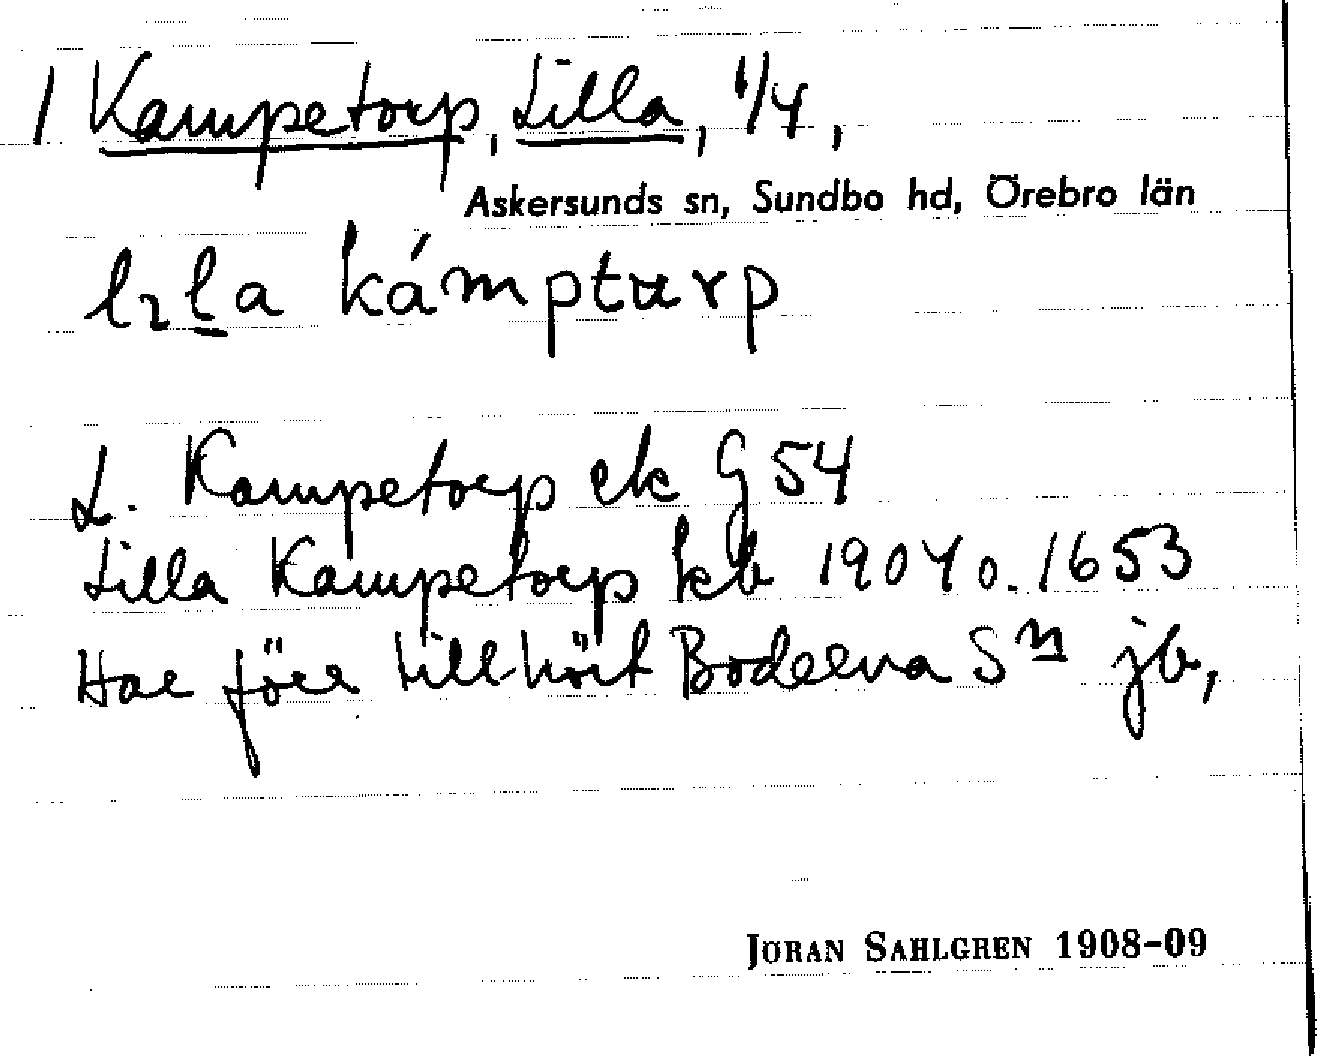 1 Kampetorp, Lilla, 1/4,
Askersunds sn, Sundbo hd, Örebro län
lɩla kámpturp
L. Kampetorp ek G 54
Lilla Kampetorp kb 1904 o. 1653
Har förr tillhört Boderna Sn jb,
JÖRAN SAHLGREN 1908-09